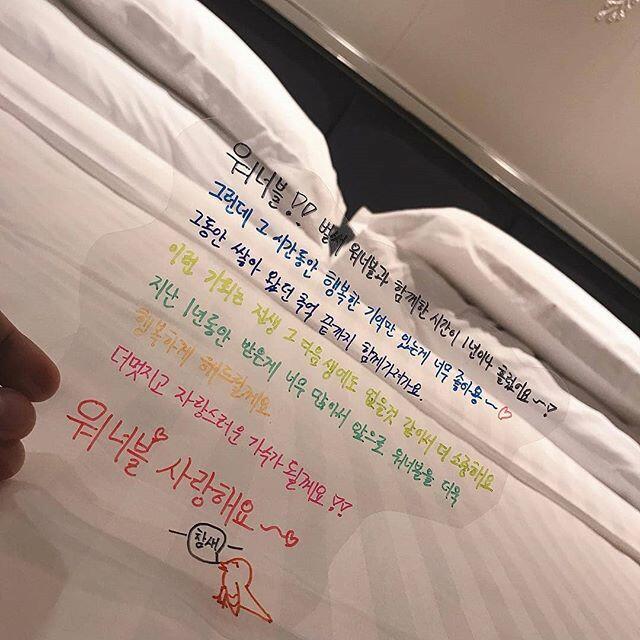 워너블!! 벌써 워너블과 함께한 시간이 1년이나 흘렀어요~!
그런데 그 시간동안 행복한 기억만 있는게 너무 좋아용~♡
그동안 쌓아 왔던 추억 끝까지 함께가져가요.
이런 기회는 전생 그 다음생에도 없을것 같아서 더 소중해요
지난 1년동안 받은게 너무 많아서 앞으로 워너블을 더욱
행복하게 해드릴게요
더멋지고 자랑스러운 가수가 될게요!!
워너블 사랑해요~♡
참새